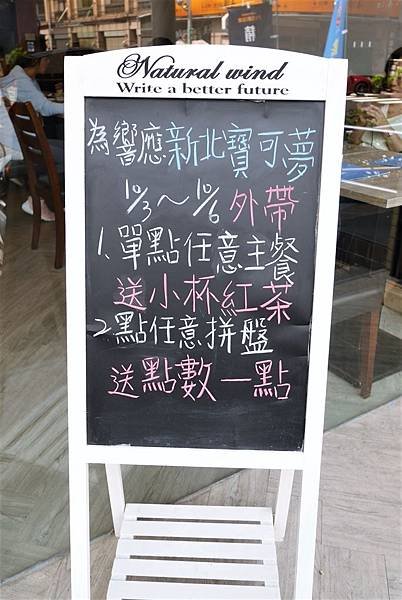 Natural wind
Write a better future
為響應新北寶可夢
10/3～10/6 外帶
1.單點任意主餐
送小杯紅茶
2.點任意拼盤
送點數一點